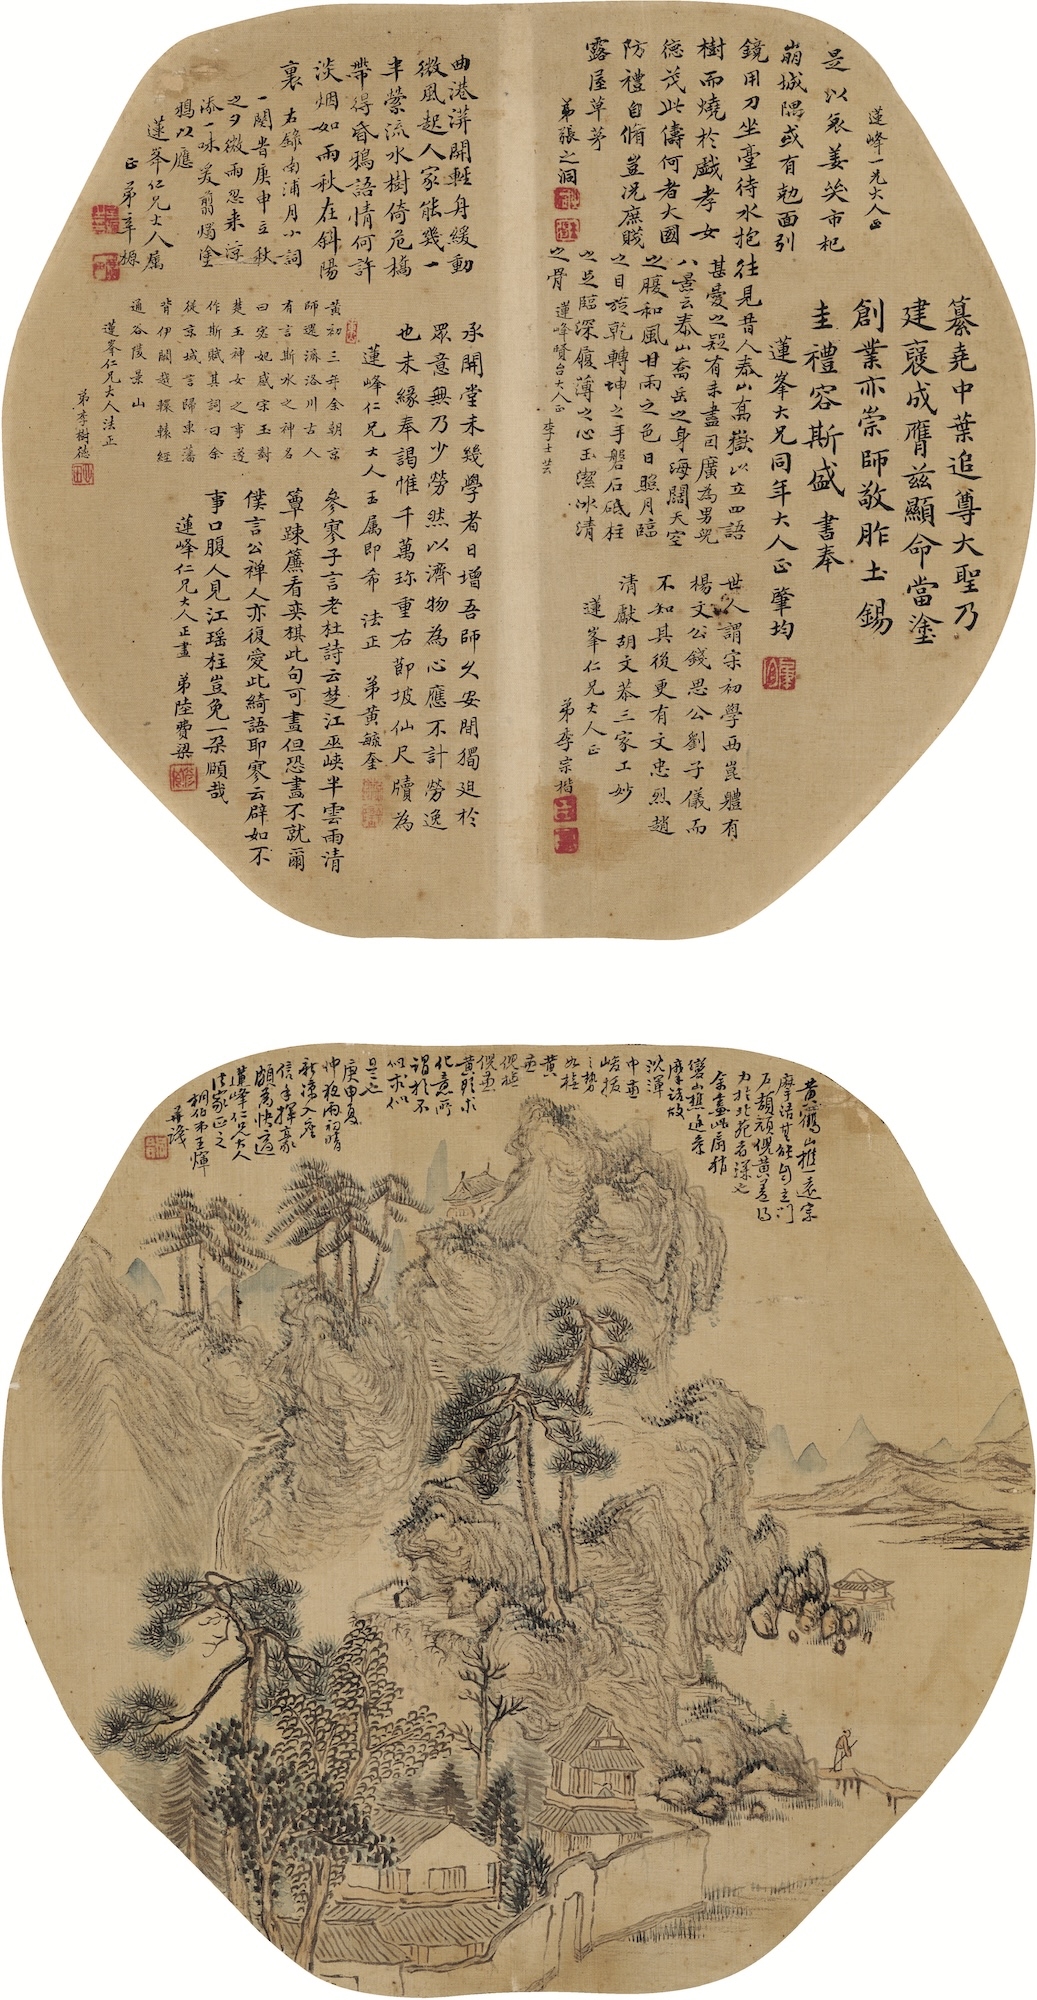 蓮峰一兄大人正
是以哀姜哭市杞
崩城隅或有勉面引
鏡用刀坐臺待水抱
樹而燒於戲孝女
德茂此儔何者大國
防禮自脩豈況庶賤
露屋草茅
弟張之洞
纂堯中葉追尊大聖乃
建褒成膺茲顯命當塗
創業亦崇師敬胙土錫
圭禮容斯盛 書奉
蓮峯大兄同年大人正 肇均
往見昔人泰山喬嶽以立四語
甚愛之疑有未盡司廣為男兒
八景云泰山喬岳之身海闊天空
之腹和風甘雨之色日照月臨
之目旋乾轉坤之手磐石砥柱
之足臨深履薄之心玉潔冰清
之骨 蓮峰賢台大人正 李士芸
世人謂宋初學西崑體有
楊文公錢思公劉子儀而
不知其後更有文忠烈趙
清獻胡文恭三家工妙
蓮峯仁兄大人正
弟李宗楷
曲港漾開輕舟緩動
微風起人家能幾一
半縈流水樹倚危橋
帶得昏鴉語情何許
淡烟如雨秋在斜陽
裏 右錄南浦月小詞
一闋昔庚申立秋
之夕微雨忽来涼
添一味爰翦燭塗
鴉以應
蓮峯仁兄大人屬
正 弟辛橠
承開堂未幾學者日增吾師久安閒獨迫於
眾意無乃少勞然以濟物為心應不計勞逸
也未緣奉謁惟千萬珎重右節坡仙尺牘為
蓮峰仁兄大人玉属即希 法正 弟黃毓奎
黃初三年余朝京
師還濟洛川古人
有言斯水之神名
曰宓妃感宋玉對
楚王神女之事遂
作斯賦其詞曰余
從京域言歸東藩
背伊闕越轘轅經
通谷陵景山
蓮峯仁兄大人法正
弟李樹德
參寥子言老杜詩云楚江巫峽半雲雨清
簟疎簾看奕棋此句可畫但恐畫不就爾
僕言公禅人亦復愛此綺語耶寥云辟如不
事口腹人見江瑤柱豈免一朶頤哉
蓮峰仁兄大人正畫 弟陸費梁
黃鶴山樵一遠宗
摩詰其能自立門
戶頡頏倪黃蓋得
力於北苑者深也
余畫此扇拈
雙山樵逕象
摩詰故
沈渾
中更
峭拔
之勢
如桂
黃
亞
倪桂
倪亞
黃頭求
化意所
謂於不
似求似
是也
庚申夏
仲夜雨初晴
新涼入座
信手揮豪
頗為快適
蓮峰仁兄大人
法家正之
桐伯弟王燡
并識